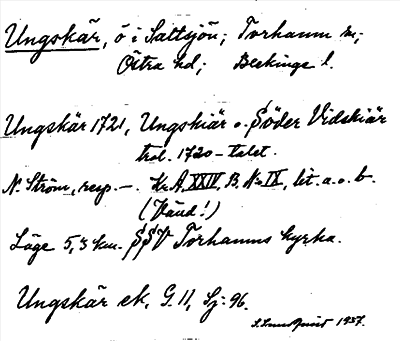 Ungskär, ö i Saltsjön; Torhamn sn;
Östra hd; Blekinge l.
Ungskär 1721, Ungskiär o. Söder Vidskiär
trol. 1720-talet.
N. Ström, resp. —. Kr. A. XXIV, B. No IX, lit. a. o. b.
(Vänd!)
Läge 5,3 km. SSV Torhamns kyrka.
Ungskär ek. G. 11, Sj: 96.
S. Lundquist 1937.